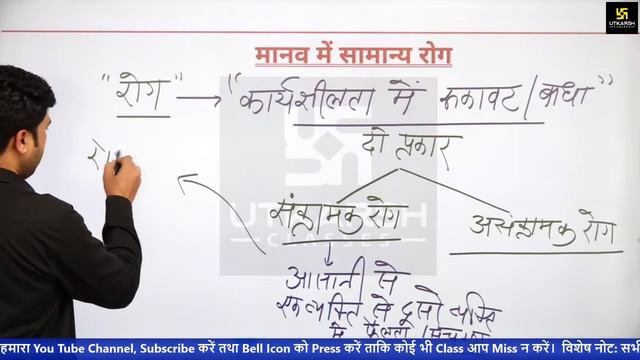 UTKARSH
CLASSES
मानव में सामान्य रोग
"रोग" → "कार्यशीलता में रुकावट/बाधा"
दो प्रकार
रो
संक्रामक रोग
असंक्रामक रोग
UTKARSH
CLASSES
आसानी से
एक व्यक्ति से दूसरे व्यक्ति
में फैलता
हमारा You Tube Channel, Subscribe करें तथा Bell Icon को Press करें ताकि कोई भी Class आप Miss न करें। विशेष नोट: सभी